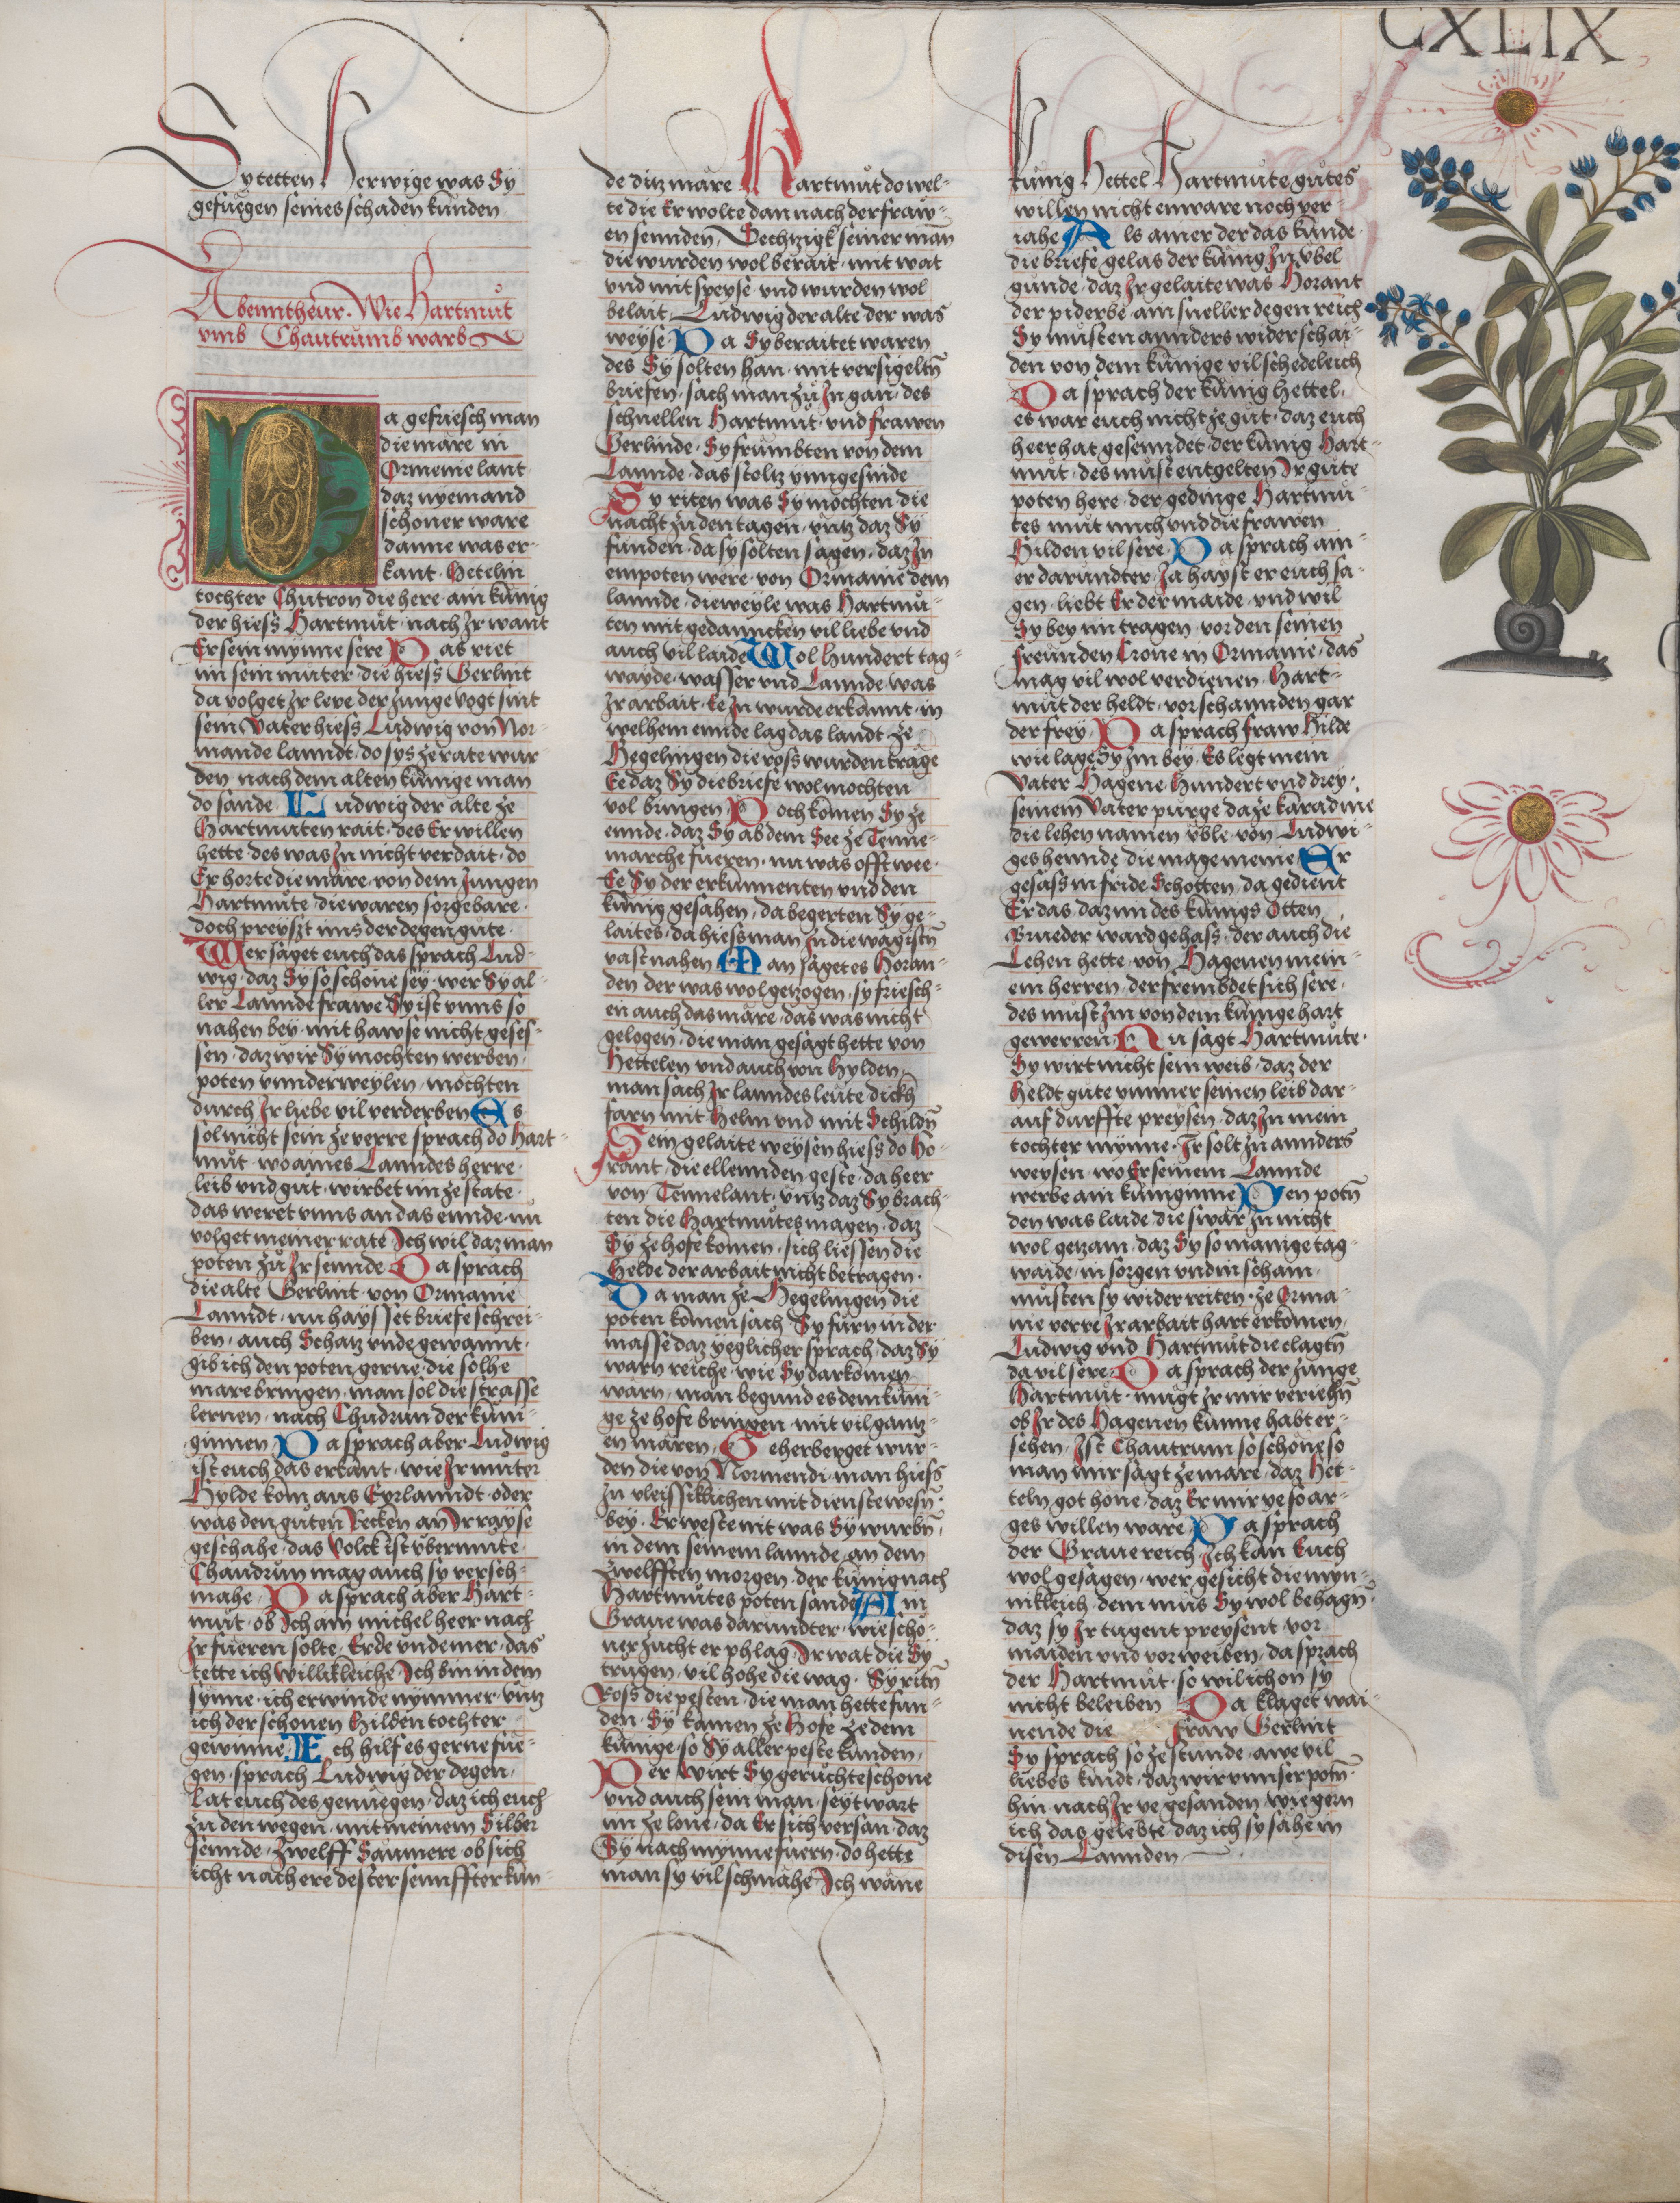 CXLIX
Sy tetten Herwige was Sy
gefuegen seines schaden kunden
Abenntheur. Wie Hartmut
vmb Chautrumb warb
Da gefriesch man
die märe in
Ormenie lant
daz nyemand
schoner ware
danne was er-
kant. Hetelin
tochter Chutron die here. ain kunig
der hiess Hartmut. nach Ir want
Er sein mynne sere Das riet
im sein muter. die hiess Gerlint
da volget Ir lere der Junge vogt sint
sein Vater hiess Ludwig von Nor-
mande lanndt. do sys ze rate war
den nach dem alten kunige man
do sande. Ludwig der alte ze
Hartmuten rait. des Er willen
hette. des was In nicht verdait. do
Er horte die märe. von dem Jungen
Hartmute. die waren sorgebare.
doch preyszt uns der degen gute.
Wer saget euch das sprach Lud-
wig. daz Sy so schöne sey. wer Sy al-
ler Lannde frawe Sy ist vnns so
nahen bey. mit hawse nicht geses-
sen. daz wir Sy mochten werben.
poten vnnder weylen. möchten
durch Ir liebe vil verderben Es
sol nicht sein ze verre sprach do Hart-
mut. wo aines Lanndes herre.
leib vnd gut. wirbet im ze state.
das weret vnns an das ennde. nu
volget meiner rate Ich wil daz man
poten zu Ir sennde Da sprach
die alte Gerlint. von Ormanie
Lanndt. nu haysset briefe schrei-
ben. auch Schatz vnde gewannt.
gib ich den poten gerne. die solhe
mare bringen. man sol die strasse
lernen. nach Chudrun der kuni-
ginnen Da sprach aber Ludwig
ist euch das erkant. wie Ir muter
Hylde kom aus Eyrlanndt. oder
was den guten Recken an Ir rayse
geschahe. das Volck ist vbermute.
Chaudrun mag auch sy versch-
mahe. Da sprach aber Hart-
mut. ob Ich ain michel heer nach
Ir fueren solte. Erde vnde mer. das
tette ich willikleiche Ich bin in dem
synne. ich erwinde nymmer. vntz
ich der schonen Hilden tochter
gewinne. Ich hilf es gerne fue-
gen. sprach Ludwig der degen.
Lat euch des genuegen. daz ich euch
zu den wegen. mit meinem Silber
sennde. zwelff Saumere. ob sich
icht nach ere dester sennffter kun-
de ditz märe Hartmut do wel-
te die Er wolte dan nach der fraw-
en sennden. Sechtzigk seiner man
die wurden wol berait. mit wat
vnd mit speyse. vnd wurden wol
belait. Ludwig der alte der was
weyse. Da Sy beraitet waren
des Sy solten han. mit versigeltn
briefen. sach man zu In gan. des
schnellen Hartmut. vnd frawen
Gerlinde. Sy frumbten von dem
Lannde. das stoltz ynngesinde
Sy riten was Sy mochten. die
nacht zu den tagen. vntz daz Sy
funden. da sy solten sagen. daz In
empoten were. von Ormanie dem
lannde. die weyle was Hartmu-
ten mit gedanncken vil liebe vnd
auch vil laide Wol hundert tag-
wayde. wasser vnd Lannde. was
Ir arbait. Ee In wurde erkannt. in
welhem ennde lag das landt. ze
Hegelingen die ross wurden träge
Ee daz Sy die briefe wol mochten
vol bringen Doch komen Sy ze
ennde. daz Sy ab dem See ze Tenne-
marche fueren. nu was offt wee.
Ee Sy der erkunnenten vnd den
kunig gesahen. da begerten Sy ge-
laites. da hiess man In die wägistn
vast nahen Man saget es Horan-
den der was wol getzogen. sy friesch-
en auch das märe. das was nicht
gelogen. die man gesagt hette von
Hettelen vnd auch von Hylden.
man sach Ir lanndes leute dickh
farn mit Helm vnd mit Schildn
Sein gelaite weysen hiess do Ho-
rant. die ellennden geste. da heer
von Tennelant. vntz daz Sy brach-
ten die Hartmutes magen. daz
Sy ze hofe komen. sich liessen die
Helde der arbait nicht betragen.
Da man ze Hegelingen die
poten komen sach Sy furn in der
masse daz yeglicher sprach. daz Sy
warn reiche. wie Sy dar komen
warn. man begund es dem kuni-
ge ze hofe bringen. mit vil gantz-
en mären. Geherberget wur-
den die von Normendi. man hiess
In vleissiklichen mit dienste wesn
bey. Er weste nit was Sy wurbn.
in dem seinem lannde. an dem
zwelfften morgen. der kunig nach
Hartmutes poten sande Ain
Graue was darundter. wie scho-
ner zucht er phlag. Ir wat die Sy
trugen. vil hohe die wag. Sy ritn
Ross die pesten. die man hette fun-
den. Sy kamen ze Hofe ze dem
kunige. so Sy aller peste kunden.
Der Wirt Sy geruchte schone
vnd auch sein man. seyt wart
im ze lone. da Er sich versan. daz
Sy nach mynne fuern. do hette
man sy vil schmahe. Ich wane
kunig Hettel Hartmute gutes
willen nicht enware noch ver-
iahe Als ainer der das kunde
die briefe gelas der kunig In vbel
gunde. daz Ir gelaite was Horant
der piderbe. ain sneller degen reich
Sy musten annders widerschai-
den von dem kunige vil schedeleich
Da sprach der kunig hettel.
es war euch nicht ze gut. daz euch
heer hat gesenndet. der kunig Hart-
mut. des must entgelten Ir gute
poten here. der gedinge Hartmu-
tes mut mich vnd die frawen
Hilden vil sere. Da sprach ain-
er darundter. Ja hayst er euch sa-
gen. liebt Er der maide. vnd wil
Sy bey im tragen. vor den seinen
freunden Crone in Ormanie. das
mag vil wol verdienen. Hart-
mut der heldt. vor schannden gar
der frey. Da sprach fraw Hilde
wie lage Sy Im bey. Es legt mein
Vater Hagene Hundert vnd drey.
seinem Vater purge da ze karadine
die lehen namen vble. von Ludwi-
ges hennde die mage meine Er
gesass in fride Schotten. da gedient
Er das. daz im des kunigs Otten
Brueder ward gehass. der auch die
Lehen hette. von Hagenen mein-
em herren. der frembdet sich sere.
des must Im von dem kunige hart
gewerren. Nu sagt Hartmute.
Sy wirt nicht sein weib. daz der
Heldt gute ymmer seinen leib dar-
auf durffte preysen. daz In mein
tochter mynne. Ir solt In annders
weysen. wo Er seinem Lannde
werbe ain kuniginne Den potn
den was laide. die swär In nicht
wol getzam. daz Sy so manige tag-
waide. in sorgen vnd in scham.
musten sy wider reiten. ze Orma-
nie verre Ir arbait hart erkomen.
Ludwig vnd Hartmut die clagtn
da vil sere. Da sprach der Junge
Hartmut. mugt Ir mir veriehn
ob Ir des Hagenen kunne habt er-
sehen. Ist Chautrum so schöne so
man mir sagt ze mare. daz Het-
teln got hone. daz Er mir ye so ar-
ges willen ware. Da sprach
der Graue reich. Ich kan Euch
wol gesagen. wer gesicht die myn-
nikleich. dem mus Sy wol behagn.
daz sy Ir tugent preysent. vor
maiden vnd vor weiben. da sprach
der Hartmut. so wil ich on sy
nicht beleiben Da klaget wai-
nende die fraw Gerlint
Sy sprach so ze stunde. awe vil
liebes kindt. daz wir vnnser potn.
hin nach Ir ye gesanden. wie gern
ich das gelebte. daz ich sy sahe in
disen Lannden